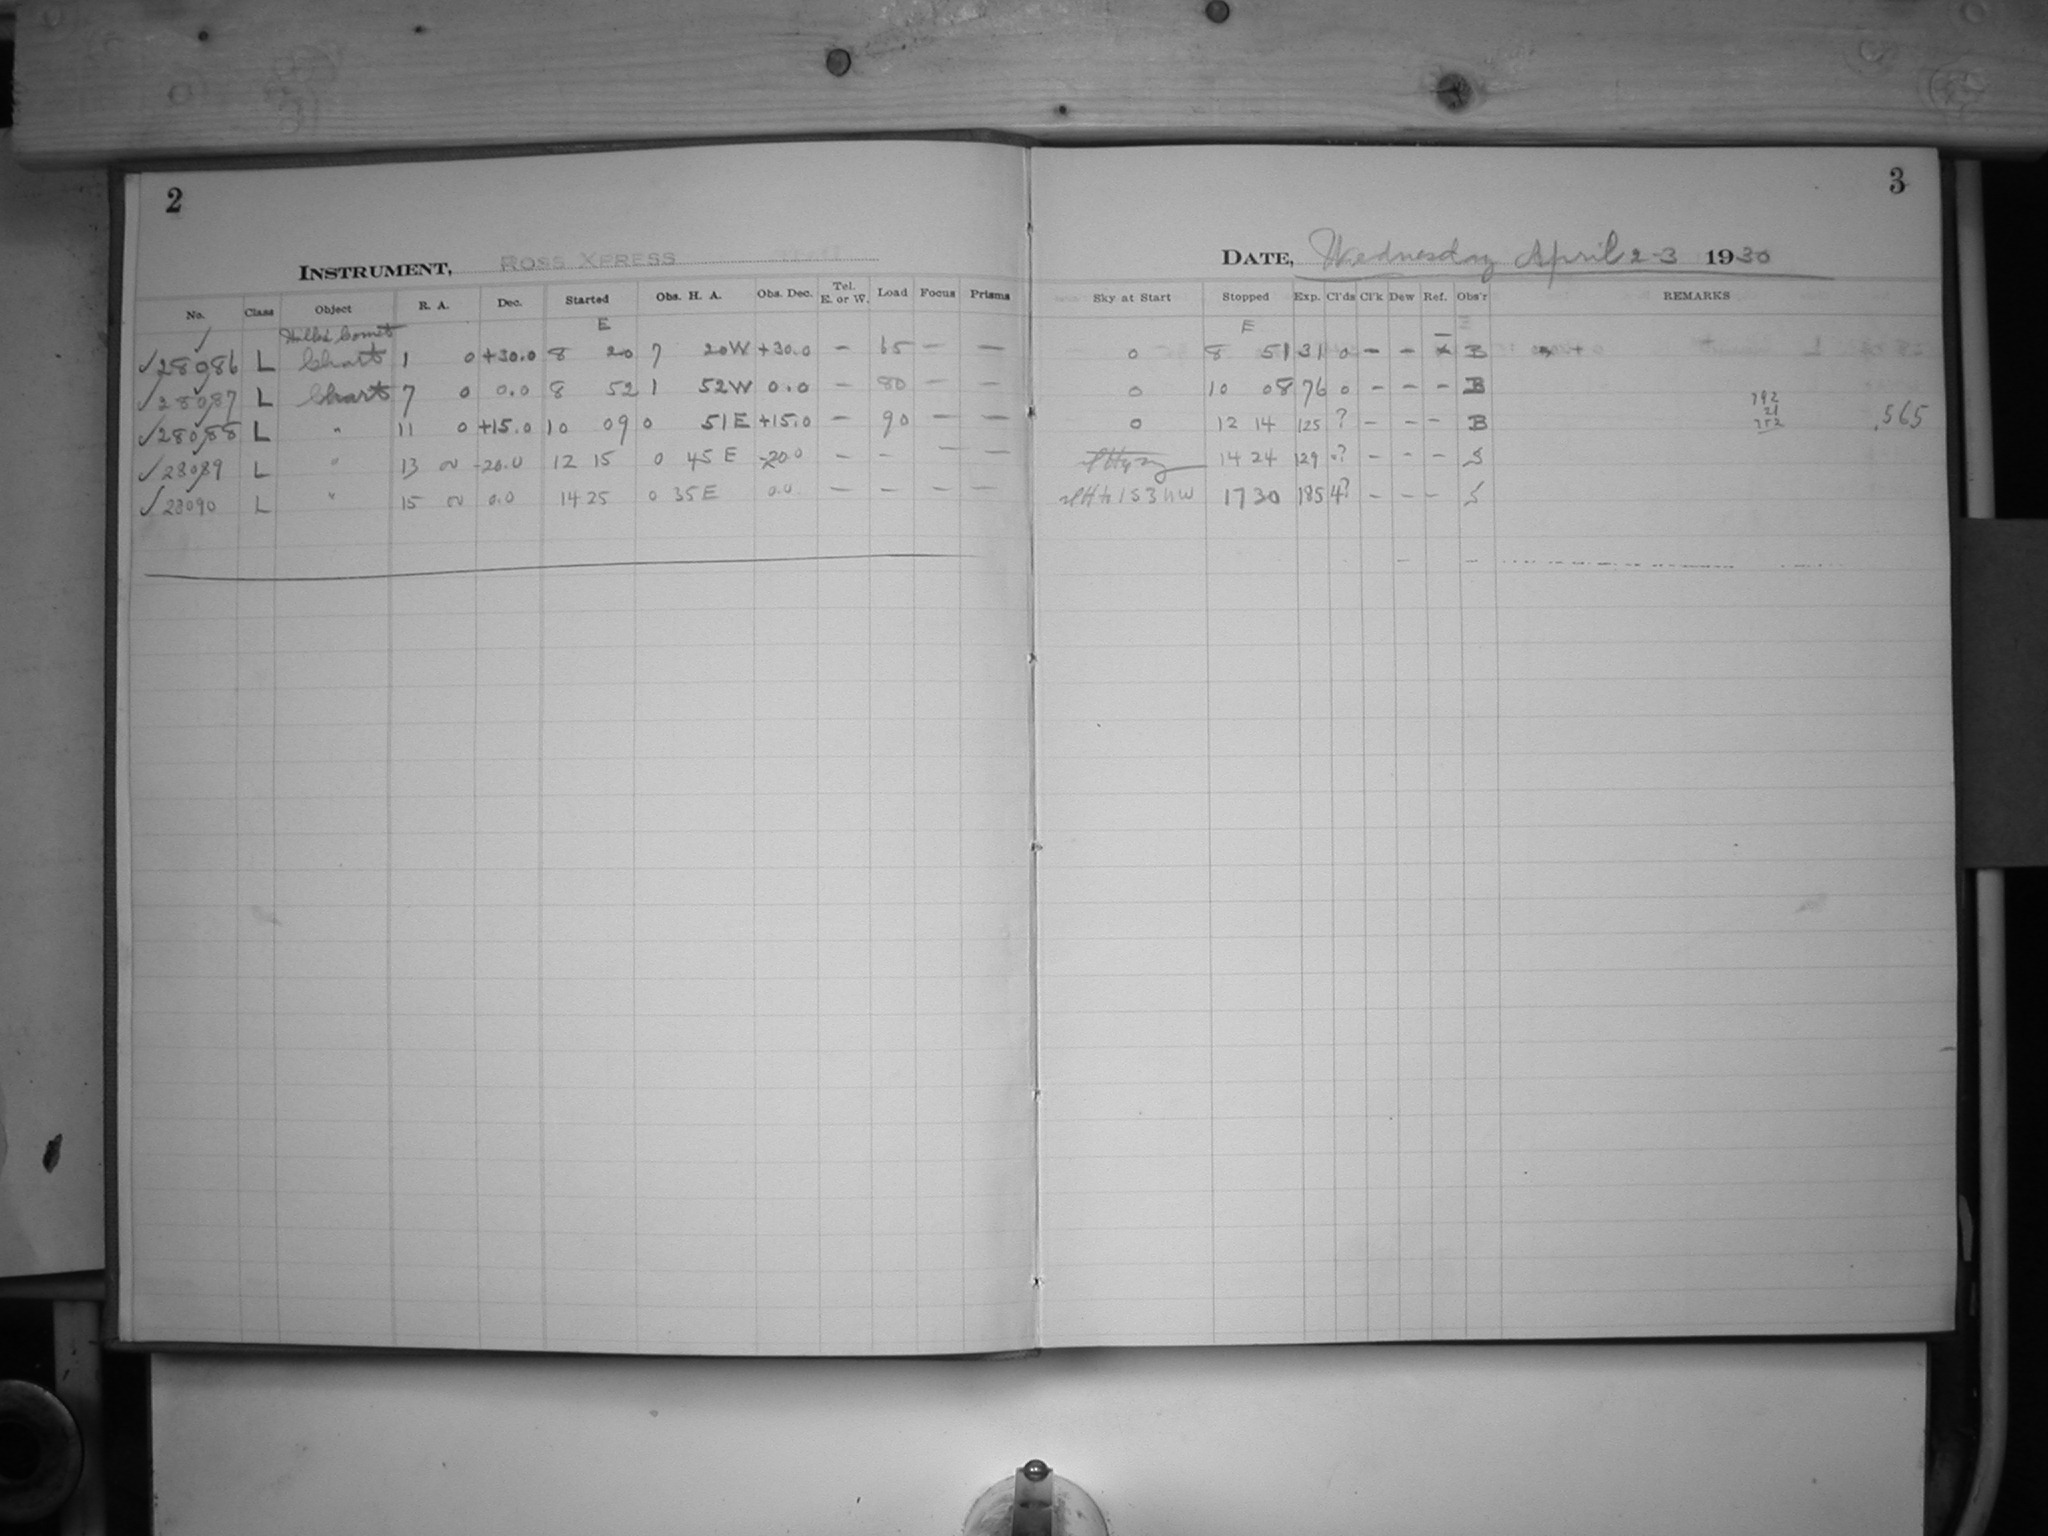 2
INSTRUMENT, ROSS XPRESS
No. Class Object R. A. Dec. Started Obs. H. A. Obs. Dec. Tel. E. or W. Load Focus Prisms
E
Comet
✓28086 L Chart 1 0 +30.0 8 20 7 20W +30.0 – 65 – –
✓28087 L Chart 7 0 0.0 8 52 1 52W 0.0 – 80 – –
✓28088 L " 11 0 +15.0 10 09 0 51E +15.0 – 90 – –
✓28089 L " 13 -20.0 12 15 0 45 E -20.0 – – – –
✓28090 L " 15 0.0 14 25 0 35E 0.0 – – – –
3
DATE, Wednesday April 2-3 1930
Sky at Start Stopped Exp. Cl'ds Cl'k Dew Ref. Obs'r REMARKS
E
0 8 51 31 0 – – B
0 10 08 76 0 – – – B
0 12 14 125 ? – – – B
14 24 129 ? – – – S
17 30 185 4? – – – S
792
21
.565